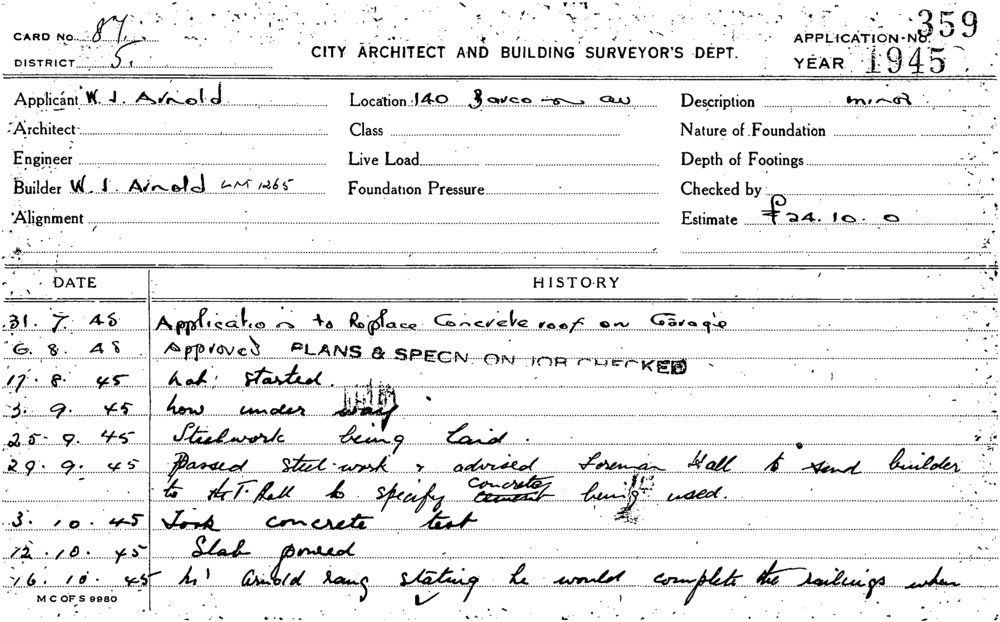 CARD No. 87
DISTRICT 5.
CITY ARCHITECT AND BUILDING SURVEYOR'S DEPT.
APPLICATION No. 359
YEAR 1945
Applicant W. J. Arnold
Location 140 av
Description minor
Architect
Class
Nature of Foundation
Engineer
Live Load
Depth of Footings
Builder W. J. Arnold LM 1265
Foundation Pressure
Checked by
Alignment
Estimate £24.10.0
DATE HISTORY
31.7.45 Application to Replace Concrete roof on Garage
6.8.45 Approved PLANS & SPECN. ON JOB CHECKED
17.8.45 Not started.
3.9.45 Now under way
25.9.45 Steelwork being laid.
29.9.45 Passed steel-work & advised Foreman Hall to send builder
to T. Hall to specify concrete being used.
3.10.45 Took concrete test
12.10.45 Slab poured
16.10.45 Mr Arnold rang stating he would complete the railings when
M C OF S 9980